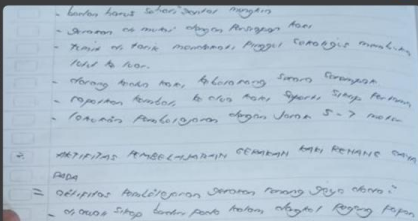 - badan harus sehorisontal mungkin
- gerakan di mulai dengan persiapan kaki
- tumit di tarik mendekati pinggul sekaligus membuka
lutut ke luar.
- dorong kedua kaki kebelakang secara serempak
- rapatkan kembali ke dua kaki seperti sikap pertama
- lakukan pembelajaran dengan jarak 5-7 meter
AKTIFITAS PEMBELAJARAN GERAKAN KAKI RENANG GAYA
DADA
= aktifitas pembelajaran gerakan renang gaya dada :
- sikap badan pada kolam dangkal